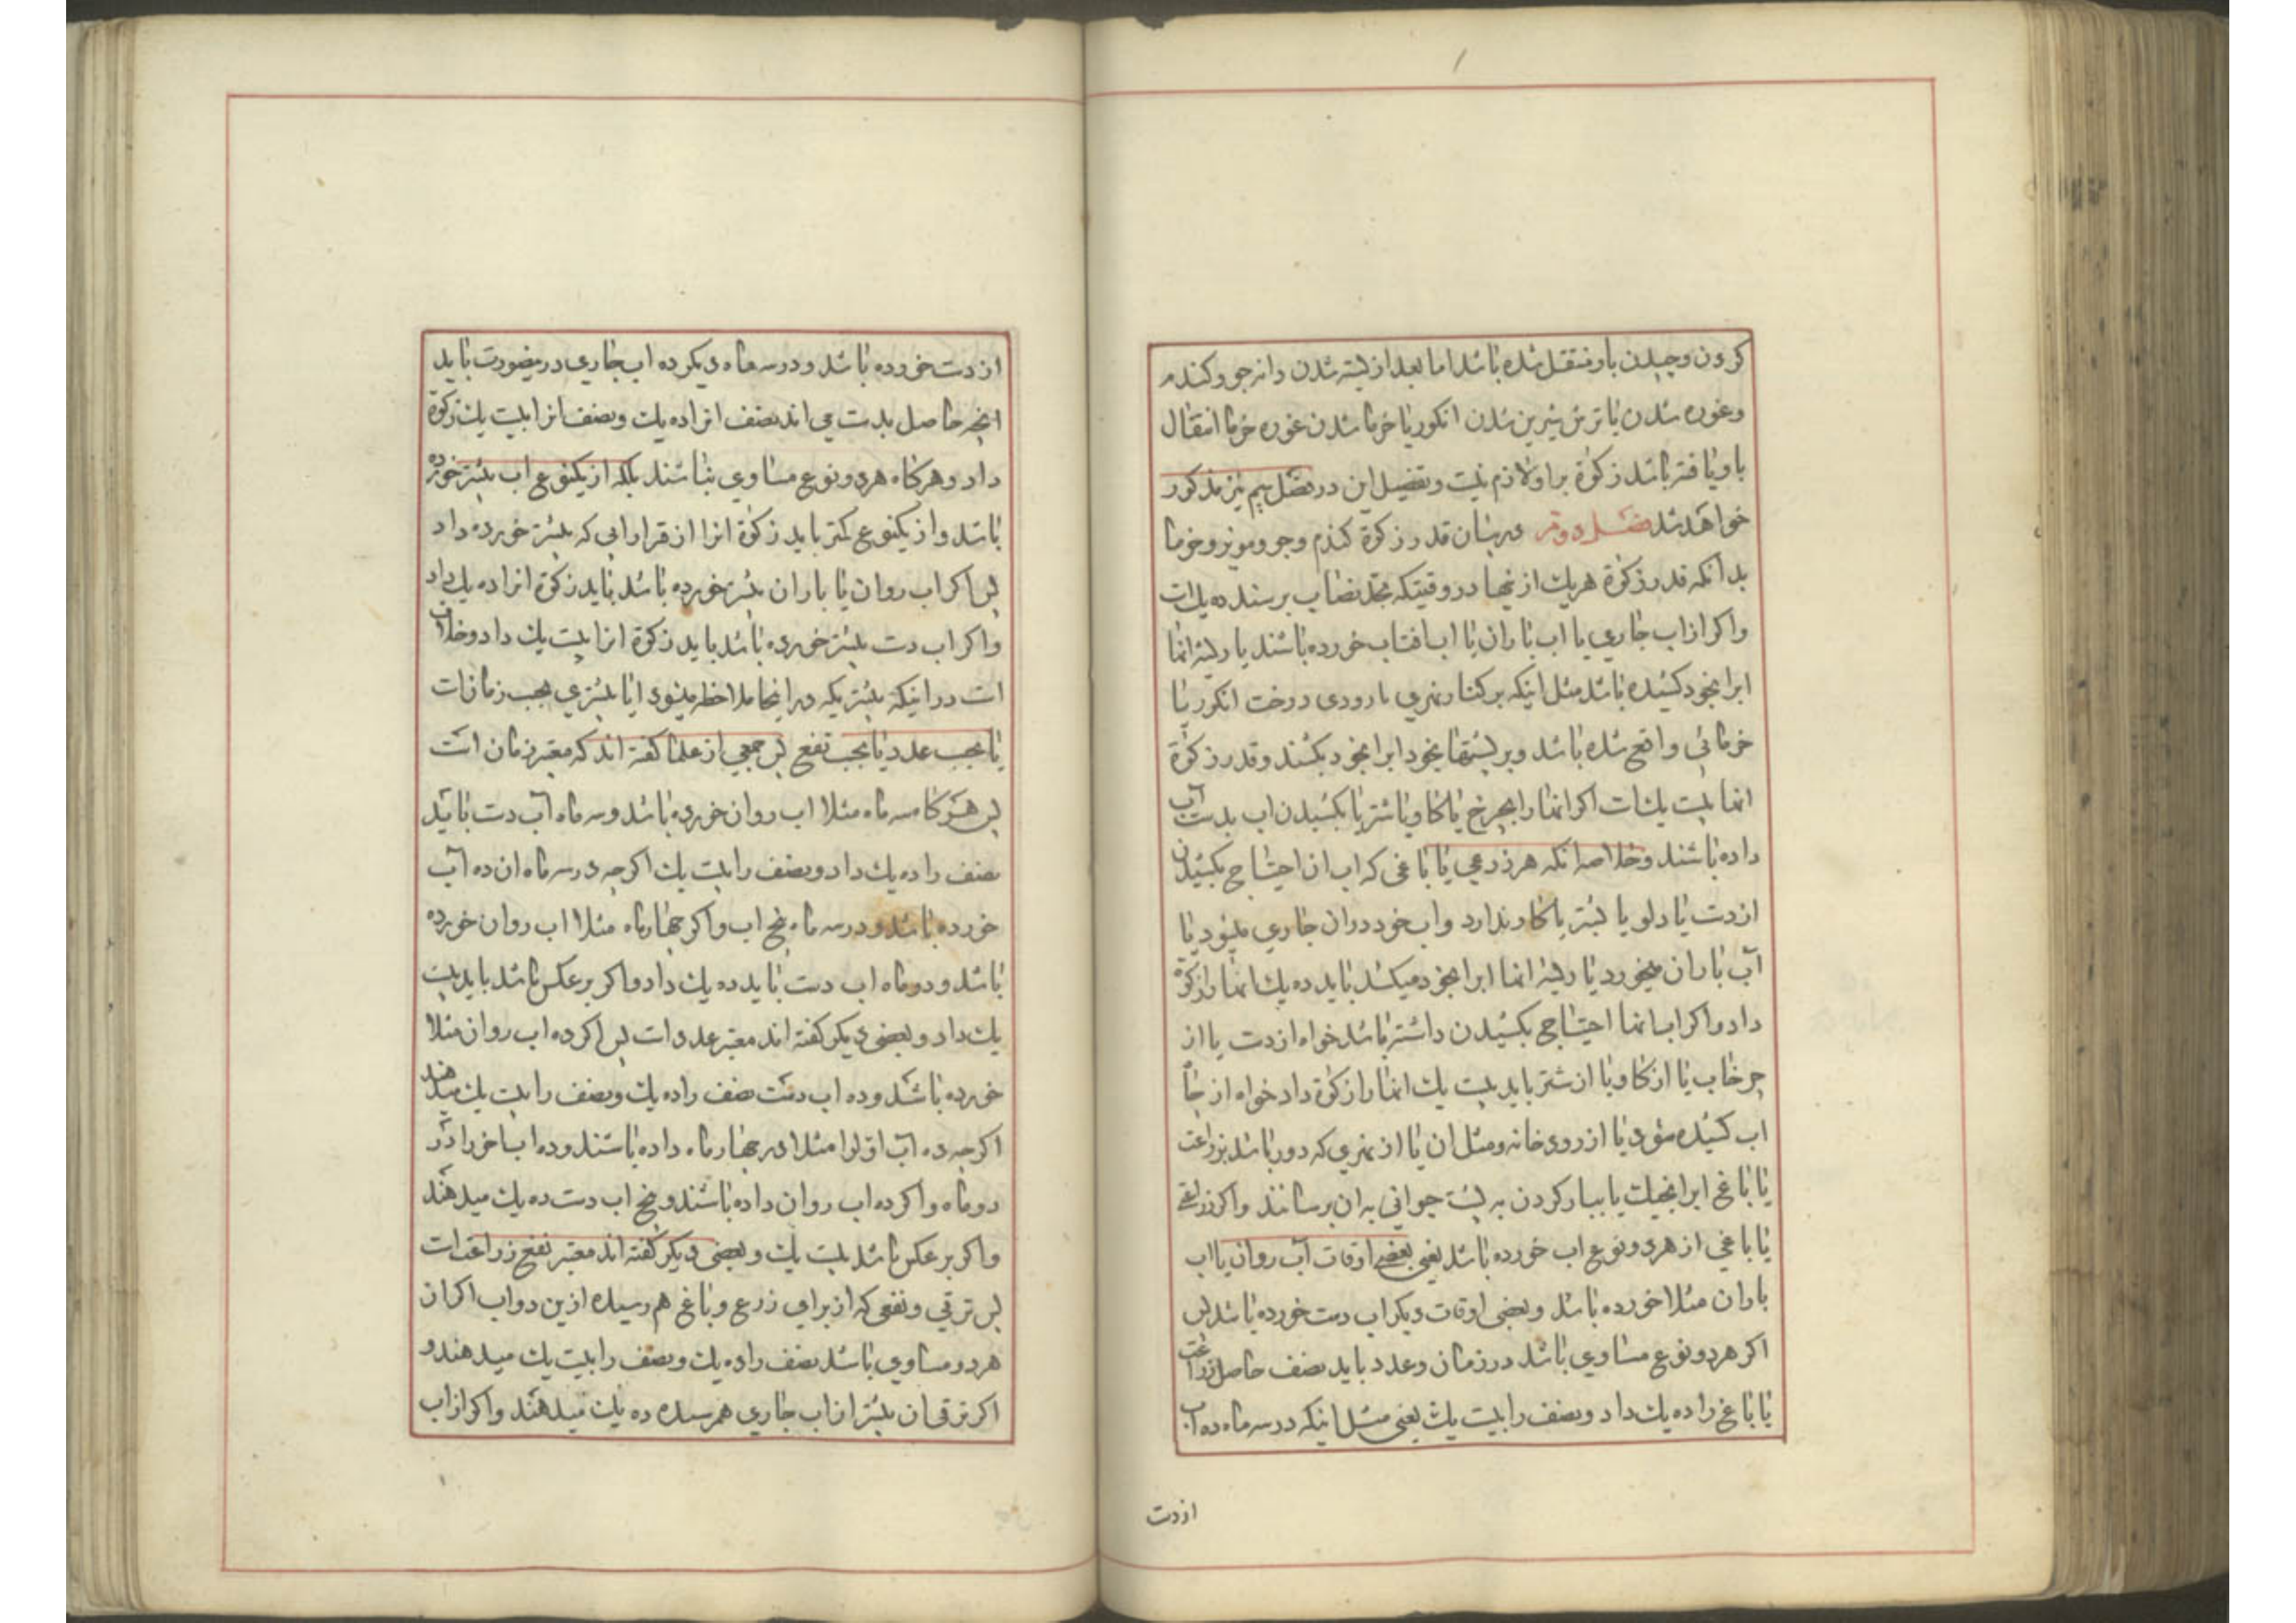 کردن و چیدن باو منتقل شده باشد اما بعد از بسته شدن دانه جو و کندم
و غوره شدن یا ترش شیرین شدن انکور یا خرما شدن غوره خرما انتقال
باو یافته باشد زکوة بر او لازم نیست و تفصیل این در فصل سیم نیز مذکور
خواهد شد فصل دوم در بیان قدر زکوة کندم و جو و مویز و خرما
بدانکه قدر زکوة هر یک از اینها در وقتیکه بحد نصاب برسند ده یک است
و اکر از اب جاری یا اب باران یا اب افتاب خورده باشند یا ریشه انها
ابرا بخود کشیده باشد مثل اینکه بر کنار نهری یا رودی درخت انکور یا
خرمائی واقع شده باشد و بریشهها بخود ابرا بخود بکشند و قدر زکوة
انها بیست یک است اکر انها را بچرخ یا کاو یا شتر یا بکشیدن اب بدست آب
داده باشند و خلاصه انکه هر زرعی یا باغی که اب ان احتیاج بکشیدن
از دست یا دلو یا شتر یا کاو ندارد و اب خود در ان جاری میشود یا
آب باران میخورد یا ریشه انها ابرا بخود میکشد باید ده یک انها را زکوة
داد و اکر اب انها احتیاج بکشیدن داشته باشد خواه از دست یا از
چرخاب یا از کاو یا از شتر باید بیست یک انها را زکوة داد خواه از جا
اب کشیده شود یا از رودخانه و مثل ان یا از نهری که دور باشد بزراعت
یا باغ ابرا بحیلت یا ببار کردن به پشت حیوانی به ان برسانند و اکر زراعتی
یا باغی از هر دو نوع اب خورده باشد یعنی بعضی اوقات آب روان یا اب
باران مثلا خورده باشد و بعضی اوقات دیکر اب دست خورده باشد پس
اکر هر دو نوع مساوی باشد در زمان و عدد باید نصف حاصل زراعت
یا باغ را ده یک داد و نصف را بیست یک یعنی مثل اینکه در سه ماه ده اب
از دست
از دست خورده باشد و در سه ماه دیکر ده اب جاری درینصورت باید
انچه حاصل بدست می اند نصف انرا ده یک و نصف انرا بیست یک زکوة
داد و هرکاه هر دو نوع مساوی نباشند بلکه از یکنوع اب بیشتر خورده
باشد و از یکنوع کمتر باید زکوة انرا از قرار ابی که بیشتر خورده داد
پس اکر اب روان یا باران بیشتر خورده باشد باید زکوة انرا ده یک داد
و اکر اب دست بیشتر خورده باشد باید زکوة انرا بیست یک داد و خلاف
است در اینکه بیشتریکه در اینجا ملاحظه میشود ایا بیشتری بحسب زمانست
یا بحسب عدد یا بحسب نفع پس جمعی از علما کفته اند که معتبر زمان است
پس هرکاه سه ماه مثلا اب روان خورده باشد و سه ماه آب دست باید
نصف را ده یک داد و نصف را بیست یک اکرچه در سه ماه ان ده آب
خورده باشد و در سه ماه پنج اب و اکر چهار ماه مثلا اب روان خورده
باشد و دو ماه اب دست باید ده یک داد و اکر بر عکس باشد باید بیست
یک داد و بعضی دیکر کفته اند معتبر عدد است پس اکر ده اب روان مثلا
خورده باشد و ده اب دست نصف را ده یک و نصف را بیست یک میدهند
اکرچه ده آب اول را مثلا در چهار ماه داده باشند و ده اب اخر را در
دو ماه و اکر ده اب روان داده باشند و پنج اب دست ده یک میدهند
و اکر بر عکس باشد بیست یک و بعضی دیکر کفته اند معتبر نفع زراعت است
پس ترقی و نفعی که از برای زرع و باغ هم رسیده ازین دو اب اکر ان
هر دو مساوی باشد نصف را ده یک و نصف را بیست یک میدهند و
اکر ترقی ان بیشتر از اب جاری هم رسیده ده یک میدهند و اکر از اب